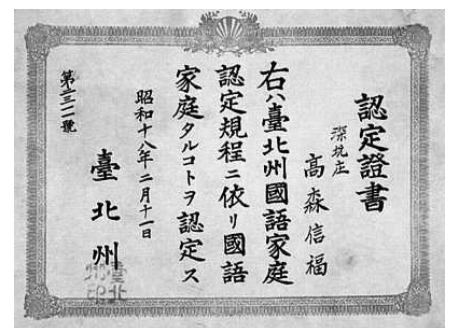 認定證書
深坑庄
高森信福
右ハ臺北州國語家庭
認定規程ニ依リ國語
家庭タルコトヲ認定ス
昭和十八年二月十一日
臺北州
臺北州印